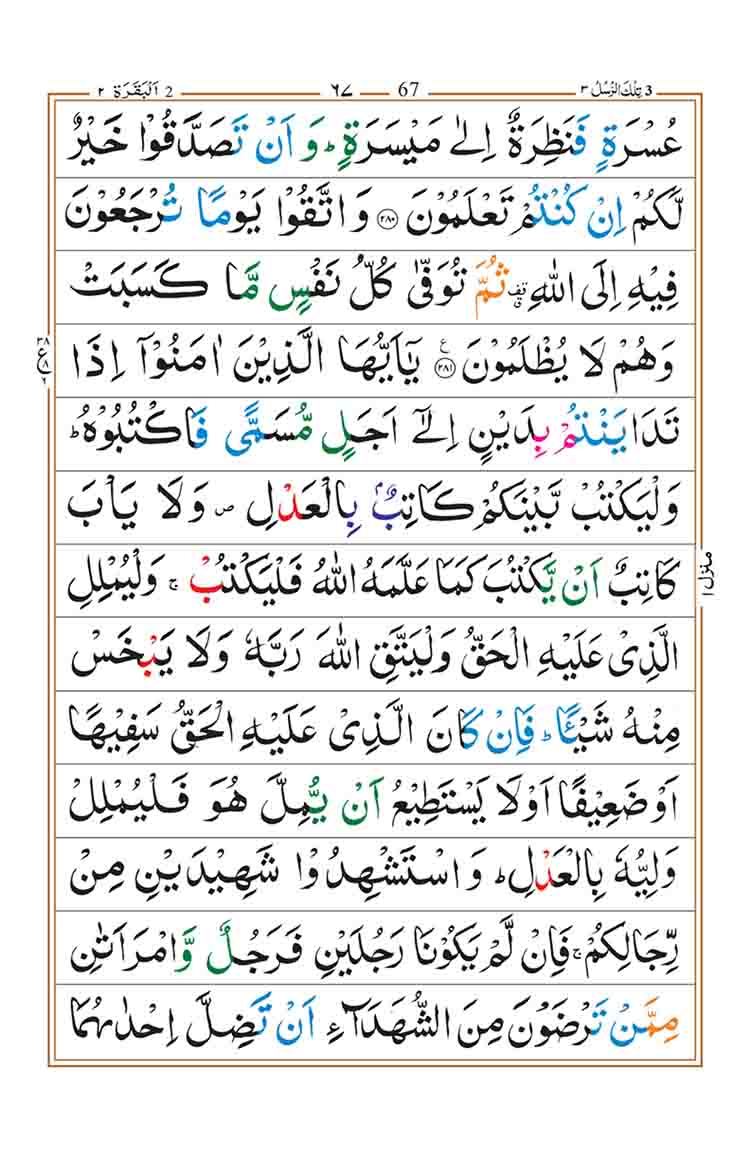 3 تِلْكَ الرُّسُلُ ٣
67 ٦٧
2 اَلْبَقَرَة ٢
عُسْرَةٍ فَنَظِرَةٌ اِلٰى مَيْسَرَةٍ ؕ وَ اَنْ تَصَدَّقُوْا خَيْرٌ
لَّكُمْ اِنْ كُنْتُمْ تَعْلَمُوْنَ ﴿۲۸۰﴾ وَ اتَّقُوْا يَوْمًا تُرْجَعُوْنَ
فِيْهِ اِلَى اللّٰهِ ۟ۗ ثُمَّ تُوَفّٰى كُلُّ نَفْسٍ مَّا كَسَبَتْ
وَهُمْ لَا يُظْلَمُوْنَ ﴿۲۸۱﴾ ع يٰۤاَيُّهَا الَّذِيْنَ اٰمَنُوْۤا اِذَا
تَدَايَنْتُمْ بِدَيْنٍ اِلٰۤى اَجَلٍ مُّسَمًّى فَاكْتُبُوْهُ ؕ
وَلْيَكْتُبْ بَّيْنَكُمْ كَاتِبٌۢ بِالْعَدْلِ ص وَلَا يَاْبَ
كَاتِبٌ اَنْ يَّكْتُبَ كَمَا عَلَّمَهُ اللّٰهُ فَلْيَكْتُبْ ۚ وَلْيُمْلِلِ
الَّذِىْ عَلَيْهِ الْحَقُّ وَلْيَتَّقِ اللّٰهَ رَبَّهٗ وَلَا يَبْخَسْ
مِنْهُ شَيْـًٔا ؕ فَاِنْ كَانَ الَّذِىْ عَلَيْهِ الْحَقُّ سَفِيْهًا
اَوْ ضَعِيْفًا اَوْ لَا يَسْتَطِيْعُ اَنْ يُّمِلَّ هُوَ فَلْيُمْلِلْ
وَلِيُّهٗ بِالْعَدْلِ ؕ وَ اسْتَشْهِدُوْا شَهِيْدَيْنِ مِنْ
رِّجَالِكُمْ ۚ فَاِنْ لَّمْ يَكُوْنَا رَجُلَيْنِ فَرَجُلٌ وَّ امْرَاَتٰنِ
مِمَّنْ تَرْضَوْنَ مِنَ الشُّهَدَآءِ اَنْ تَضِلَّ اِحْدٰٮهُمَا
منزل ١